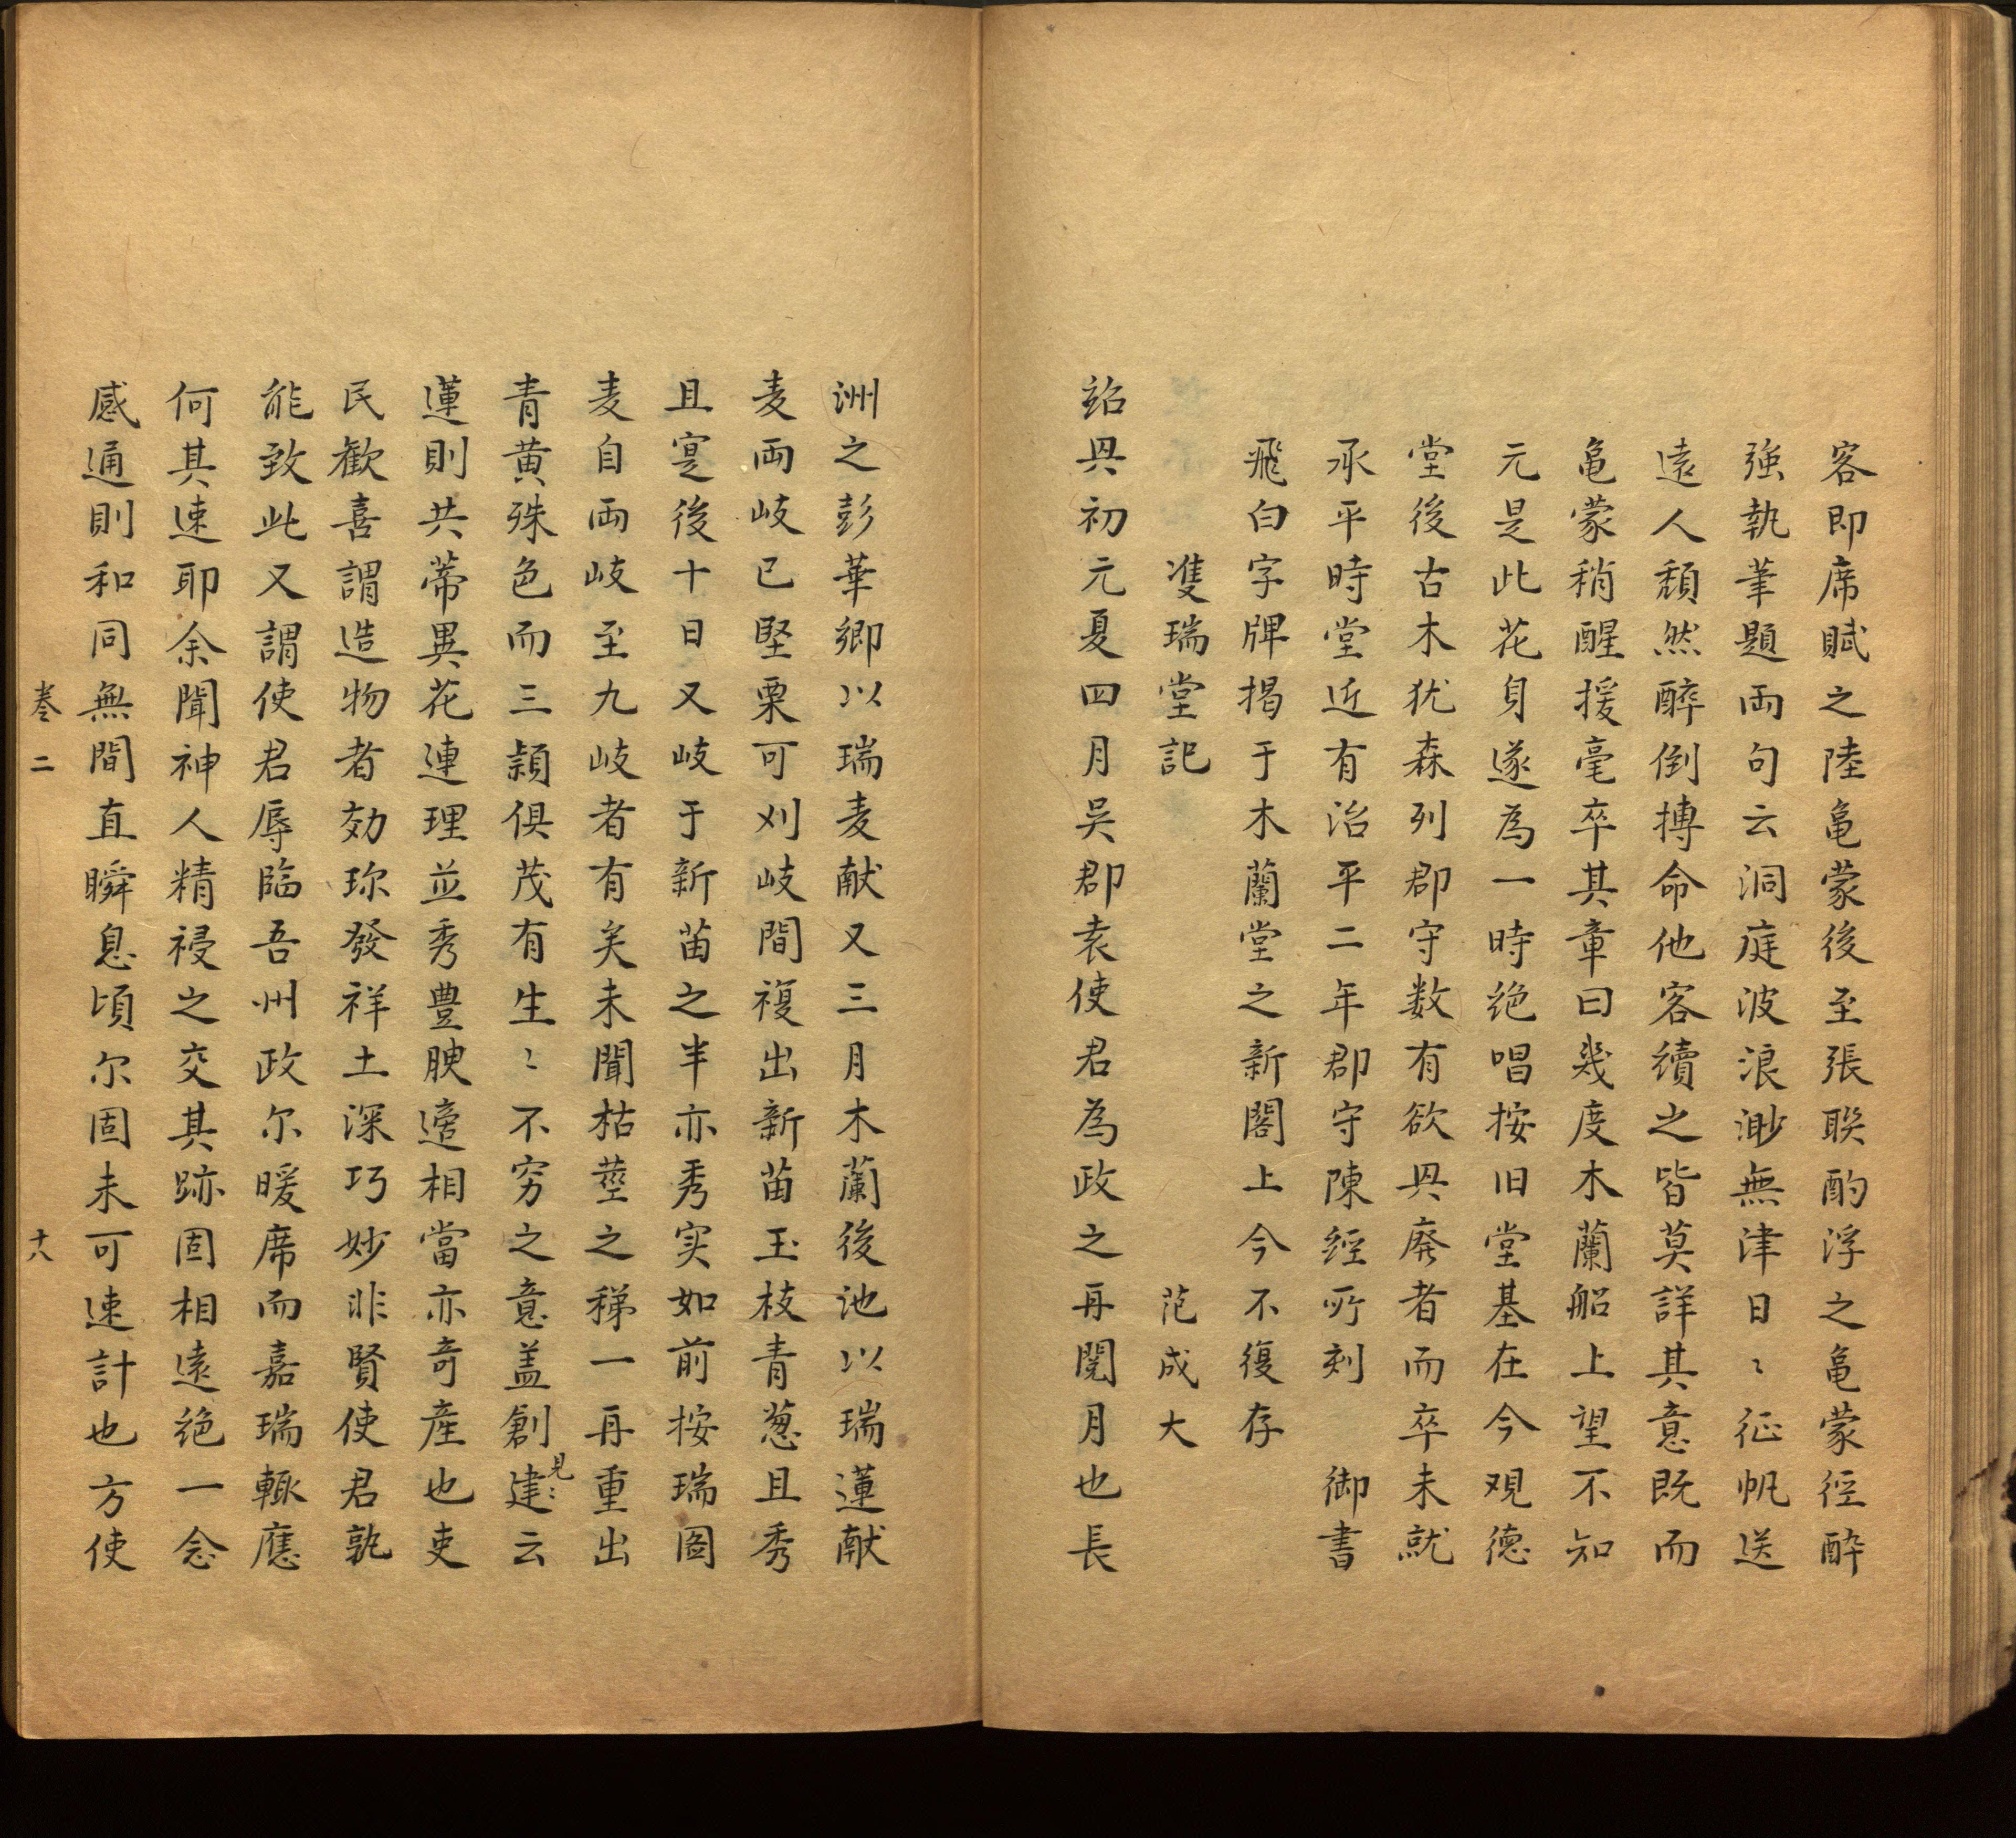 客即席賦之陸亀蒙後至張聫酌浮之亀蒙径酔
強執筆題両句云洞庭波浪渺無津日〻征帆送
遠人頽然醉倒摶命他客續之皆莫詳其意既而
亀蒙稍醒援毫卒其章曰幾度木蘭船上望不知
元是此花身遂為一時絶唱按旧堂基在今观德
堂後古木犹森列郡守数有欲㒷廃者而卒未就
承平時堂近有治平二年郡守陳經所刻　御書
飛白字牌揭于木蘭堂之新閣上今不復存
雙瑞堂記　范成大
紹㒷初元夏四月吴郡袁使君為政之再閱月也長
洲之彭華鄉以瑞麦献又三月木蘭後池以瑞蓮献
麦両岐已堅栗可刈岐間複出新苗玉枝青葱且秀
且寔後十日又岐于新苗之半亦秀实如前按瑞圖
麦自両岐至九岐者有矣未聞枯莖之稊一再重出
青黄殊色而三頴俱茂有生〻不穷之意盖創建云
見〻
蓮則共蒂異花連理並秀豊腴適相當亦奇産也吏
民歓喜謂造物者効珎發祥土深巧妙非賢使君孰
能致此又謂使君辱臨吾州政尔暖席而嘉瑞輙應
何其速耶余聞神人精祲之交其跡固相遠絶一念
感通則和同無間直瞬息頃尔固未可速計也方使
卷二　十八